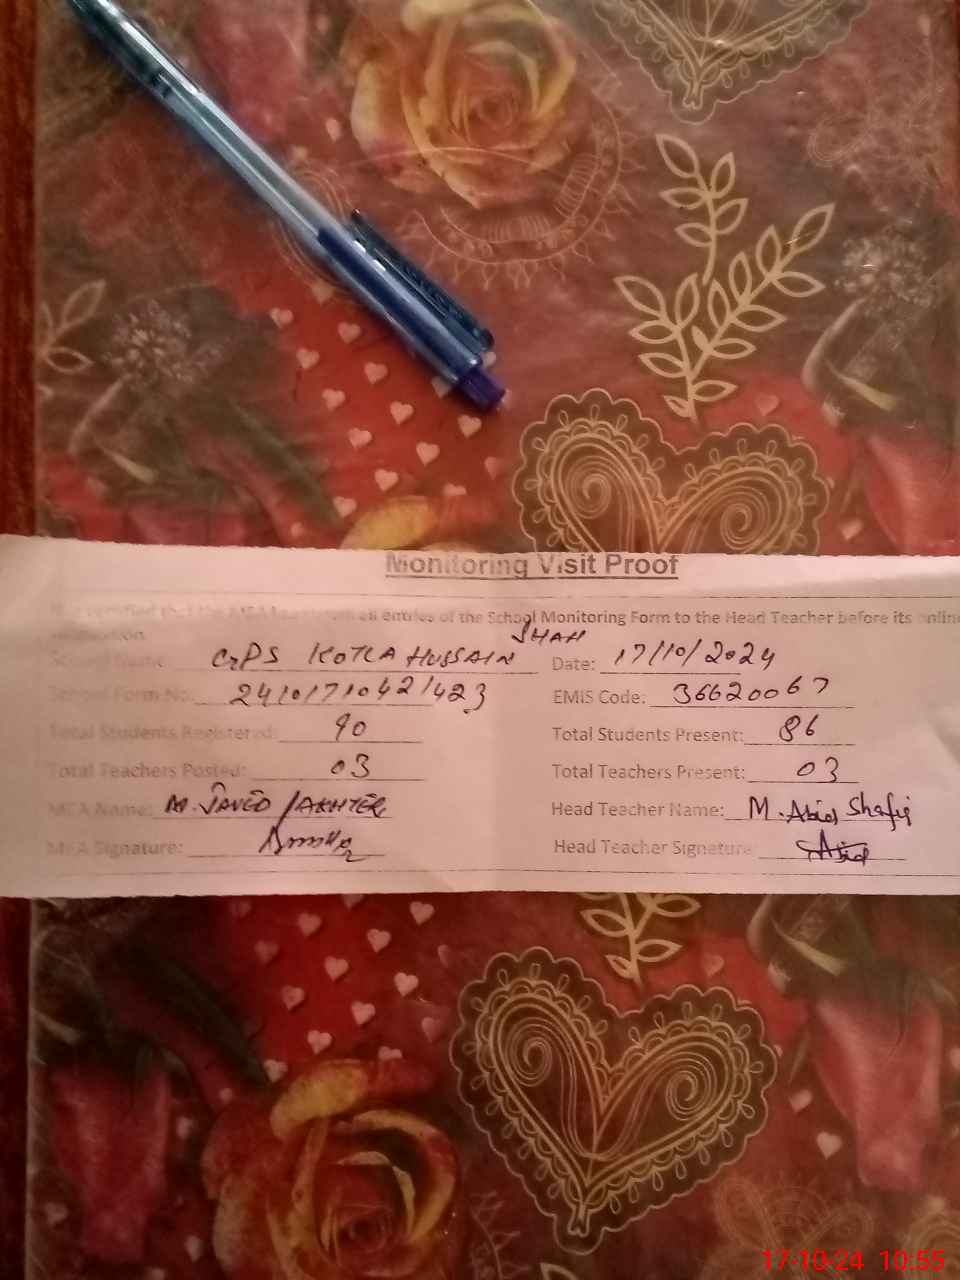 Monitoring Visit Proof
certified that the MEA has shown all entries of the School Monitoring Form to the Head Teacher before its online
SHAH
School Name GPS KOTLA HUSSAIN Date: 17/10/2024
School Form No: 24101710421423 EMIS Code: 36620067
Total Students Registered: 90 Total Students Present: 86
Total Teachers Posted: 03 Total Teachers Present: 03
MEA Name: M. JAVED AKHTER Head Teacher Name: M. Abid Shafiq
MEA Signature: Head Teacher Signature Abid
17-10-24 10:55